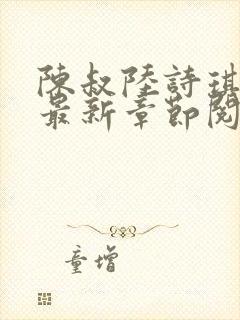 陳叔陸詩琪
最新章節閱
童增